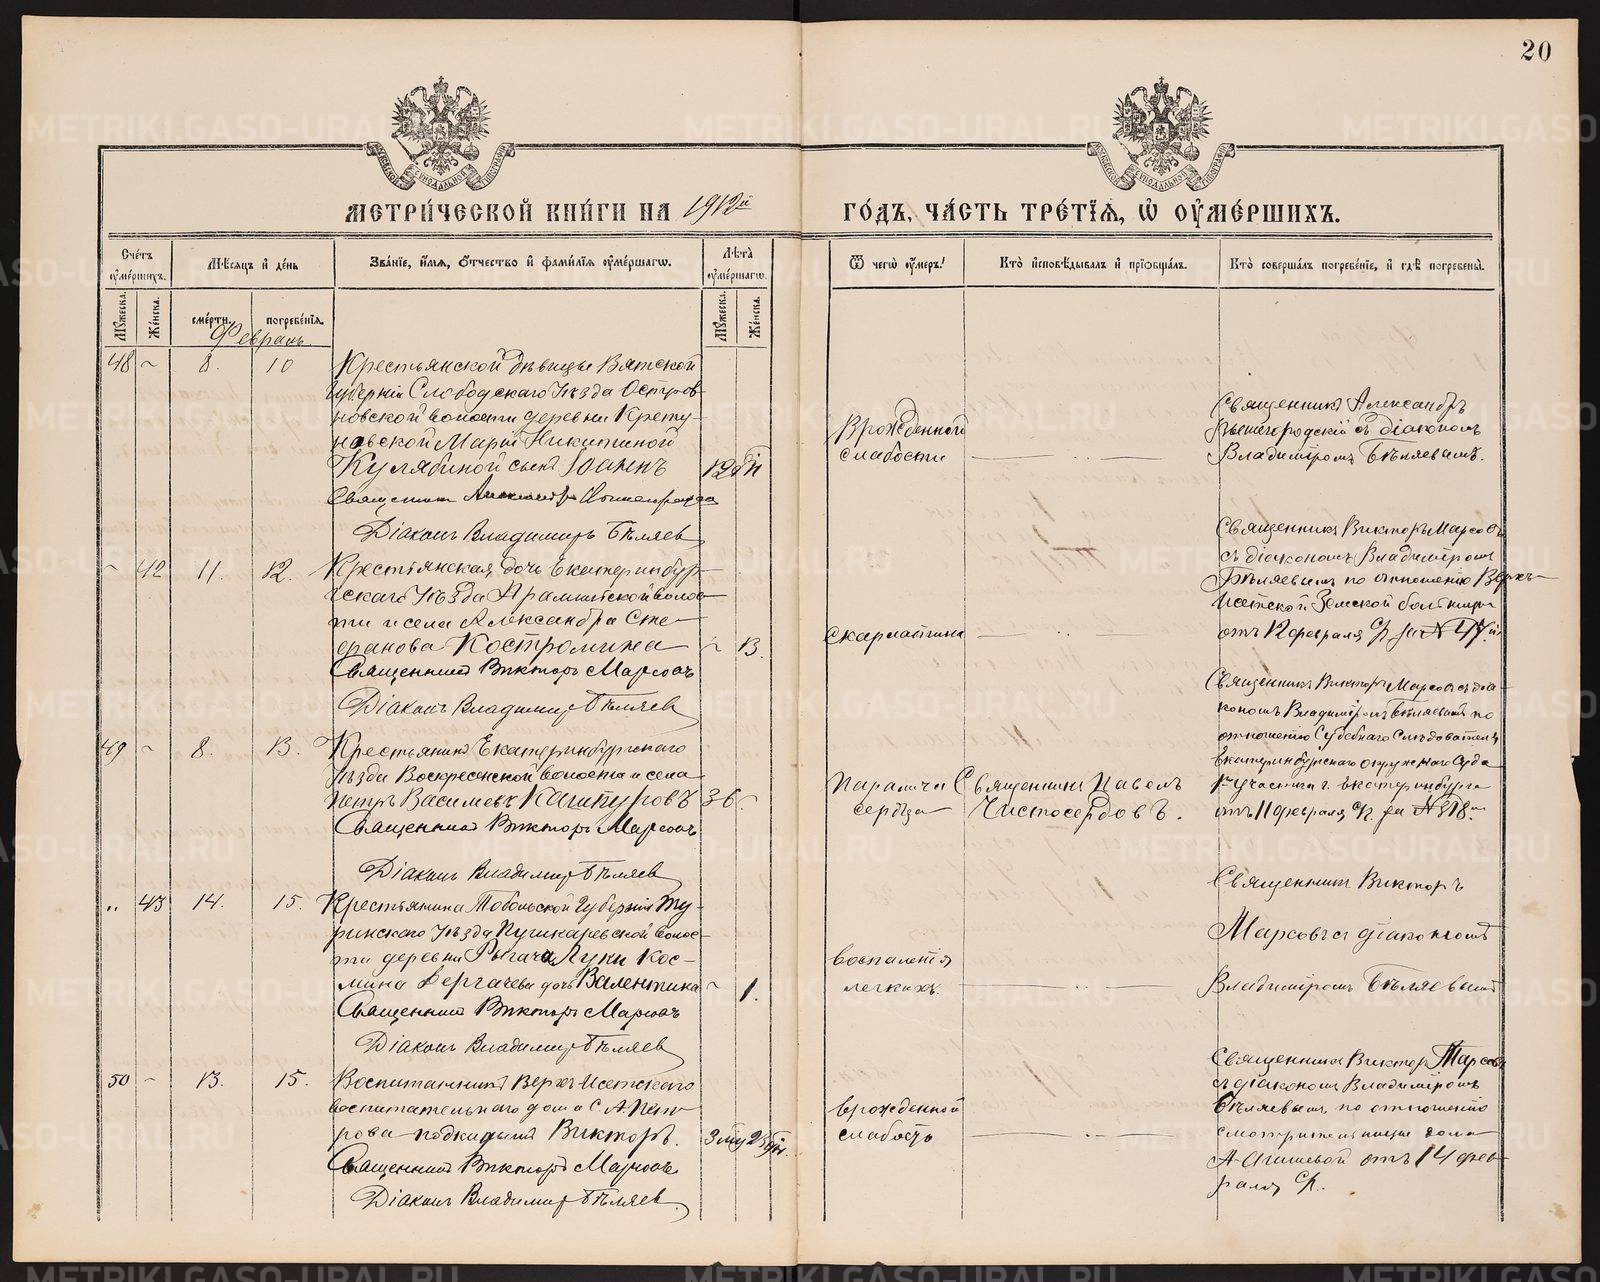 20
МЕТРИ́ЧЕСКОЙ КНИ́ГИ НА 1912й ГО́ДЪ, ЧА́СТЬ ТРЕ́ТІѦ, Ѡ҆ ОУ҆МЕ́РШИХЪ.
Сче́тъ оу҆ме́ршихъ.
Мѣ́сяцъ и҆ де́нь
Зва́ніе, и҆́мя, ѻ҆́тчество и҆ фами́лія оу҆ме́ршагѡ.
Лѣ́та оу҆ме́ршагѡ.
Ѿ чегѡ̀ оу҆́меръ!
Кто̀ и҆сповѣ́дывалъ и҆ прїѡбща́лъ.
Кто̀ соверша́лъ погребе́ніе, и҆ гдѣ̀ погребены̀.
Мꙋ́жеска.
Же́нска.
сме́рти.
погребе́нія.
Мꙋ́жеска.
Же́нска.
Февраль
48 ~ 8. 10
Крестьянской дѣвицы Вятской
губерніи Слободскаго Уѣзда Остров-
новской волости деревни Крету-
новской Маріи Никитиной
Кулябиной сынъ Іоаннъ
12 дн
Священникъ Александръ
Діаконъ Владимиръ Бѣляев
Врожденной
слабости
Священникъ Александръ
съ діакономъ
Владиміромъ Бѣляевымъ.
~ 42 11. 12.
Крестьянская дочь Екатеринбур-
скаго Уѣзда Арамильской волос-
ти и села Александра Сте-
фанова Костромина
~ 13.
Священникъ Викторъ Марсовъ
Діаконъ Владимиръ Бѣляев
скарлатина
Священникъ Викторъ Марсовъ
съ діакономъ Владиміромъ
Бѣляевымъ по отношенію Верхъ-
Исетской Земской больницы
отъ 12 февраля с/г за № 47.й
49 ~ 8. 13.
Крестьянинъ Екатеринбургскаго
Уѣзда Воскресенской волости и села
Петръ Василіевъ Кашпуровъ
36 ~
Священникъ Викторъ Марсовъ
Діаконъ Владимиръ Бѣляев
Параличъ
сердца
Священникъ Павелъ
Чистосердовъ.
Священникъ Викторъ Марсовъ съ діа-
кономъ Владиміромъ Бѣляевымъ по
отношенію Судебнаго Слѣдователя
Екатеринбургскаго окружнаго Суда
1го участка г. Екатеринбурга
отъ 11 февраля с/г. за № 318.
„ 43 14. 15.
Крестьянина Тобольской губерніи Ту-
ринскаго Уѣзда Пушкаревской волос-
ти деревни Рыгача Луки Кос-
мина Дергачева дочь Валентина
~ 1.
Священникъ Викторъ Марсовъ
Діаконъ Владимиръ Бѣляев
воспаленія
легкихъ.
Священникъ Викторъ
Марсовъ съ діакономъ
Владиміромъ Бѣляевымъ
50 ~ 13. 15.
Воспитанникъ Верхъ-Исетскаго
воспитательнаго дома С. А. Пет-
рова подкидышъ Викторъ.
3 мц 23 дн.
Священникъ Викторъ Марсовъ
Діаконъ Владимиръ Бѣляев.
врожденной
слабость
Священникъ Викторъ Марсовъ
съ діакономъ Владиміромъ
Бѣляевымъ по отношенію
смотрительницы дома
отъ 14 фев-
раля с/г.
METRIKI.GASO-URAL.RU